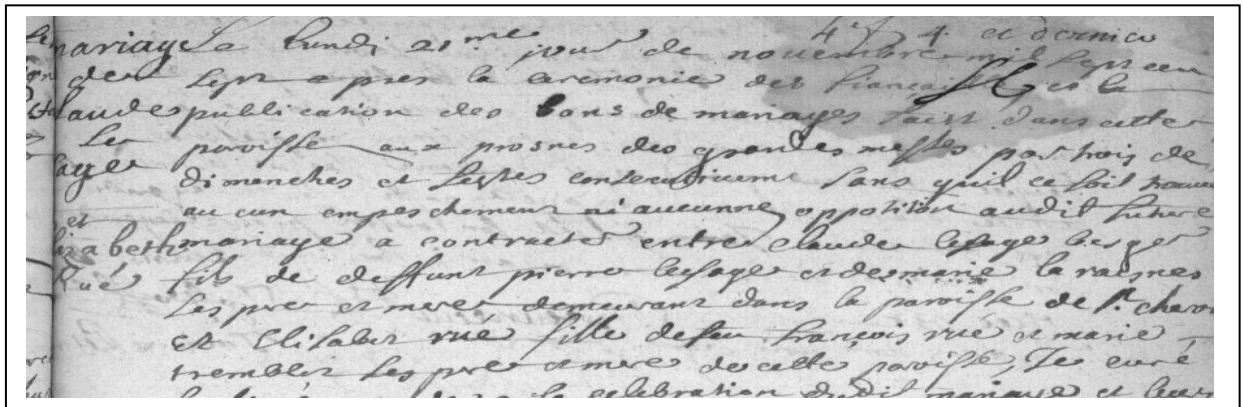 mariage Le Lundi 21me jour de novembre mil sept cen
de sept apres la ceremonie des fiancailles et la
Claude publication des bans de mariages faist dans cette
Le paroisse aux prosnes des grandes messes par trois de
sage dimanches et festes consecutivems sans quil ce soit trouve
et aucun empeschement ni aucunne oppotition audit future
Elizabeth mariage a contracter entre claude lesage berger
Rué fils de deffunt pierre lesage et de marie la raisnes
ses pere et mere demeurant dans la paroisse de St. cheron
et Elisabet rué fille de feu francois rué et marie
trembler ses pere et mere de cette paroisse, Je curé
la celebration dudit mariage et leurs